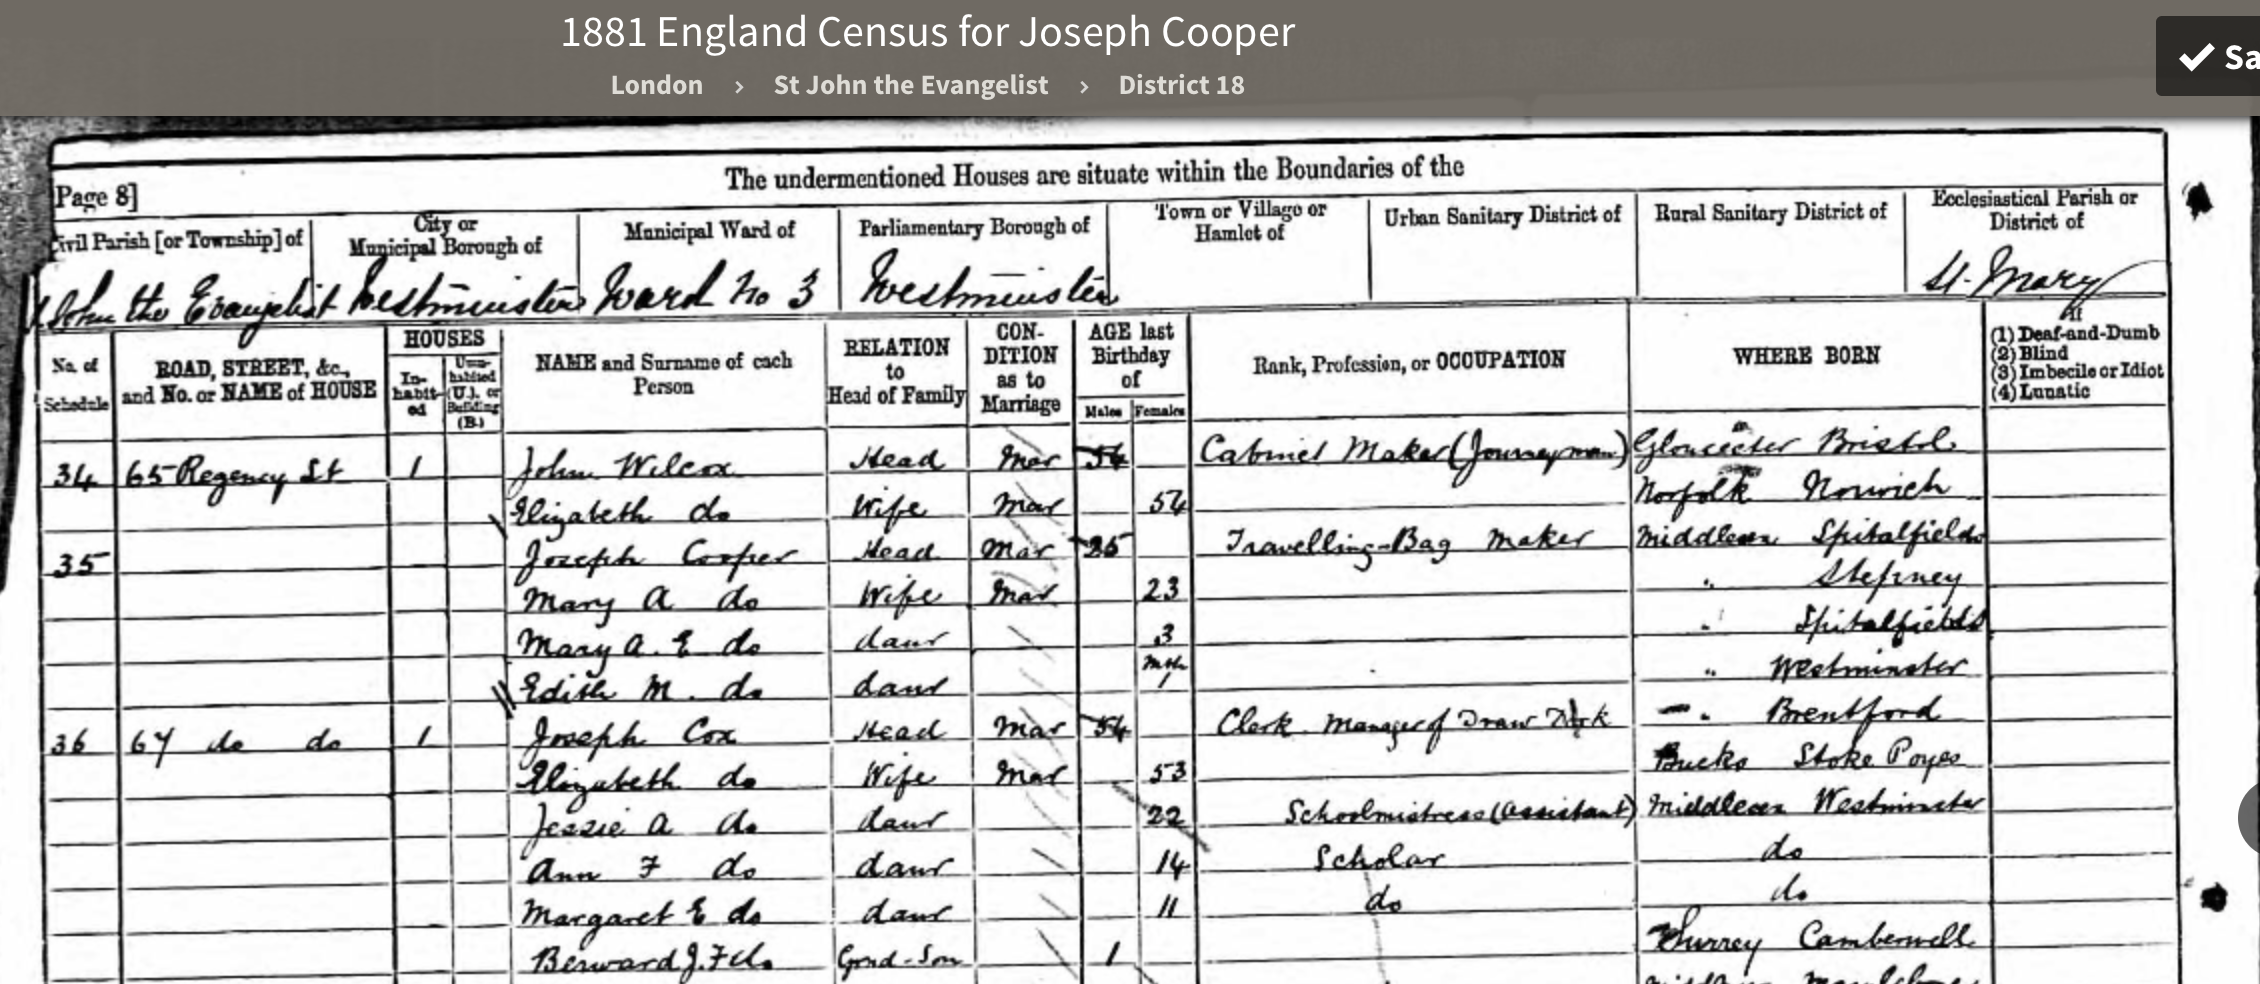 1881 England Census for Joseph Cooper
London › St John the Evangelist › District 18
✓ Sa
The undermentioned Houses are situate within the Boundaries of the
Page 8]
ivil Parish [or Township] of
City or Municipal Borough of
Municipal Ward of
Parliamentary Borough of
Town or Village or Hamlet of
Urban Sanitary District of
Rural Sanitary District of
Ecclesiastical Parish or District of
John the Evangelist Westminster Ward No 3 Westminster St. Mary
No. of Schedule
ROAD, STREET, &c., and No. or NAME of HOUSE
HOUSES
In-habit-ed
Un-habited (U.), or Building (B.)
NAME and Surname of each Person
RELATION to Head of Family
CON-DITION as to Marriage
AGE last Birthday of
Males Females
Rank, Profession, or OCCUPATION
WHERE BORN
If
(1) Deaf-and-Dumb
(2) Blind
(3) Imbecile or Idiot
(4) Lunatic
34 65 Regency St 1 John Wilcox Head Mar 56 Cabinet Maker (Journeyman) Gloucester Bristol
Elizabeth do Wife Mar 54 Norfolk Norwich
35 Joseph Cooper Head Mar 25 Travelling-Bag Maker Middlesex Spitalfields
Mary A do Wife Mar 23 " Stepney
Mary A. E do daur 3 " Spitalfields
Edith M. do daur Mth 1 " Westminster
36 67 do do 1 Joseph Cox Head Mar 54 Clerk Manager of Draw Dock " Brentford
Elizabeth do Wife Mar 53 Bucks Stoke Poges
Jessie A do daur 22 Schoolmistress (Assistant) Middlesex Westminster
Ann F do daur 14 Scholar do
Margaret E do daur 11 do do
Berward J. F do Grnd-Son 1 Surrey Camberwell